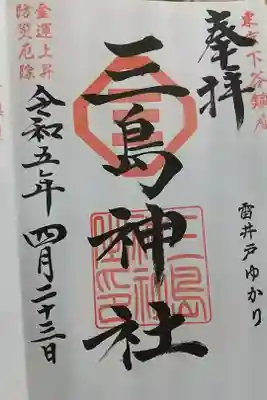 奉拝
東京下谷鎮
雷井戸ゆかり
三島神社
三島
神社
金運上昇
防災厄除
令和五年四月二十三日